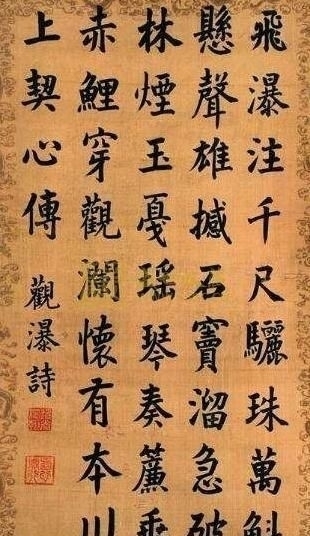 飛瀑注千尺驪珠萬斛
懸聲雄撼石竇溜急破
林煙玉戛瑤琴奏簾垂
赤鯉穿觀瀾懷有本川
上契心傳
觀瀑詩